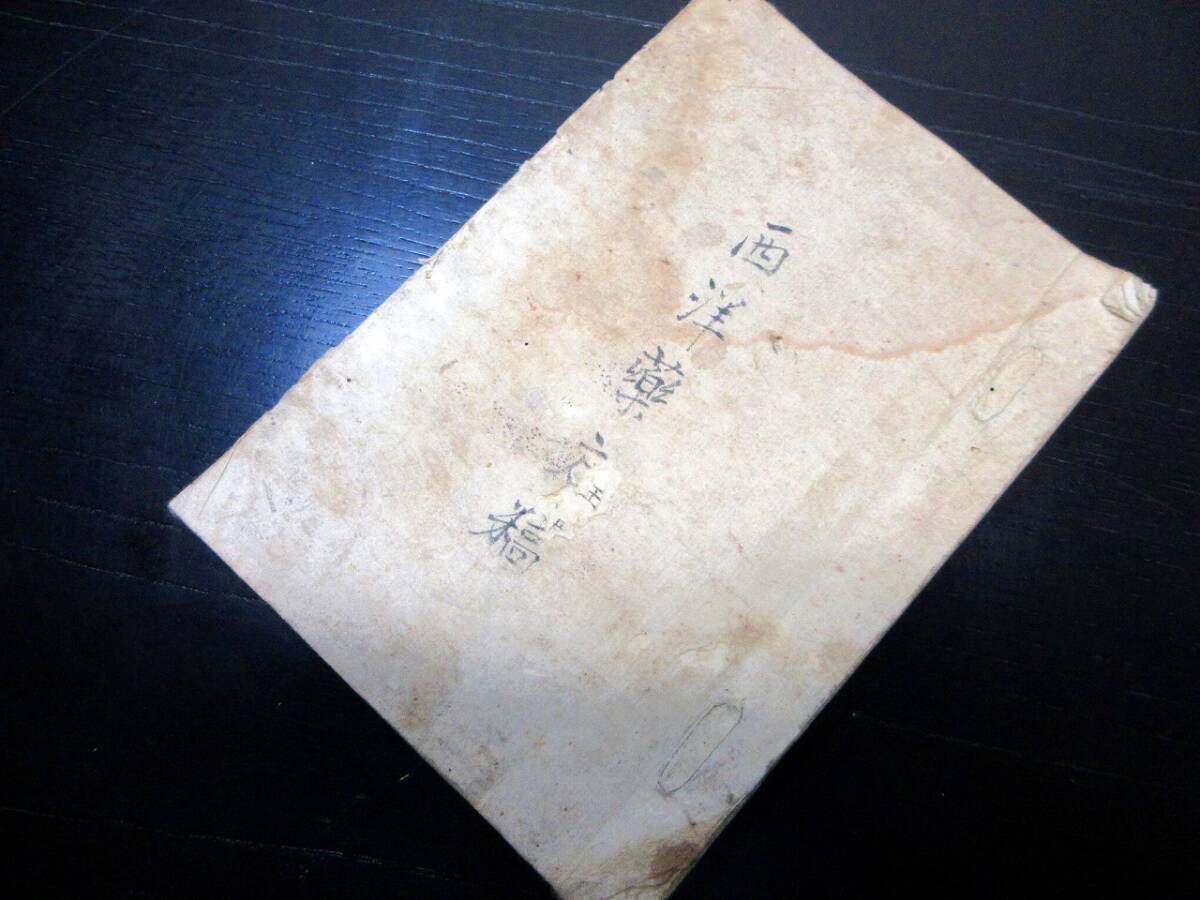 西洋藥稿